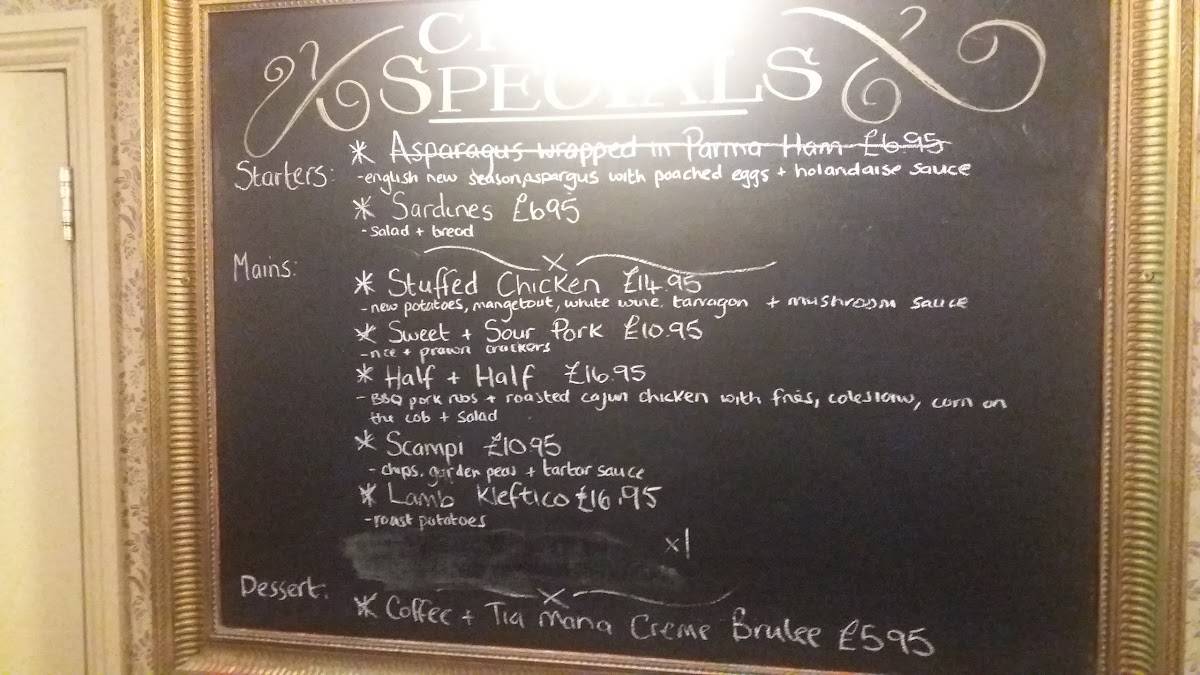 SPECIALS
Starters:
* Asparagus wrapped in Parma Ham £6.95
- english new season, aspargus with poached eggs + holandaise sauce
* Sardines £6.95
- Salad + bread
Mains:
* Stuffed Chicken £14.95
- new potatoes, mangetout, white wine, tarragon + mushroom sauce
* Sweet + Sour Pork £10.95
- rice + prawn crackers
* Half + Half £16.95
- BBQ pork ribs + roasted cajun chicken with fries, coleslaw, corn on
the cob + salad
* Scampi £10.95
- chips, garden peas + tartar sauce
* Lamb Kleftico £16.95
- roast potatoes
x1
Dessert:
* Coffee + Tia Maria Creme Brulee £5.95